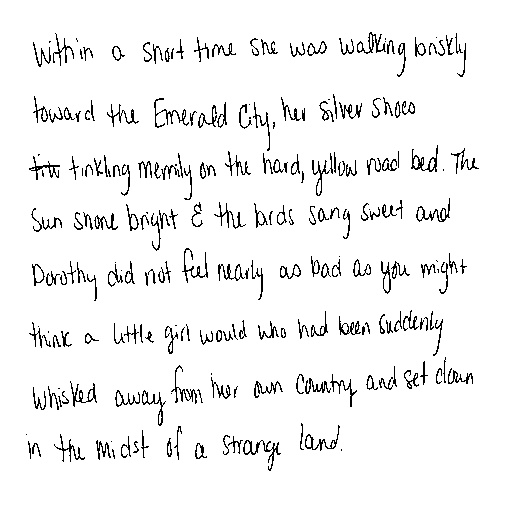 Within a short time she was walking briskly
toward the Emerald City, her silver shoes
tinkling merrily on the hard, yellow road bed. The
sun shone bright & the birds sang sweet and
Dorothy did not feel nearly as bad as you might
think a little girl would who had been suddenly
whisked away from her own country and set down
in the midst of a strange land.